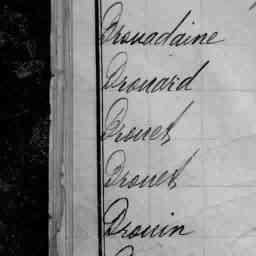 Drouadaine
Drouard
Drouet
Drouet
Drouin